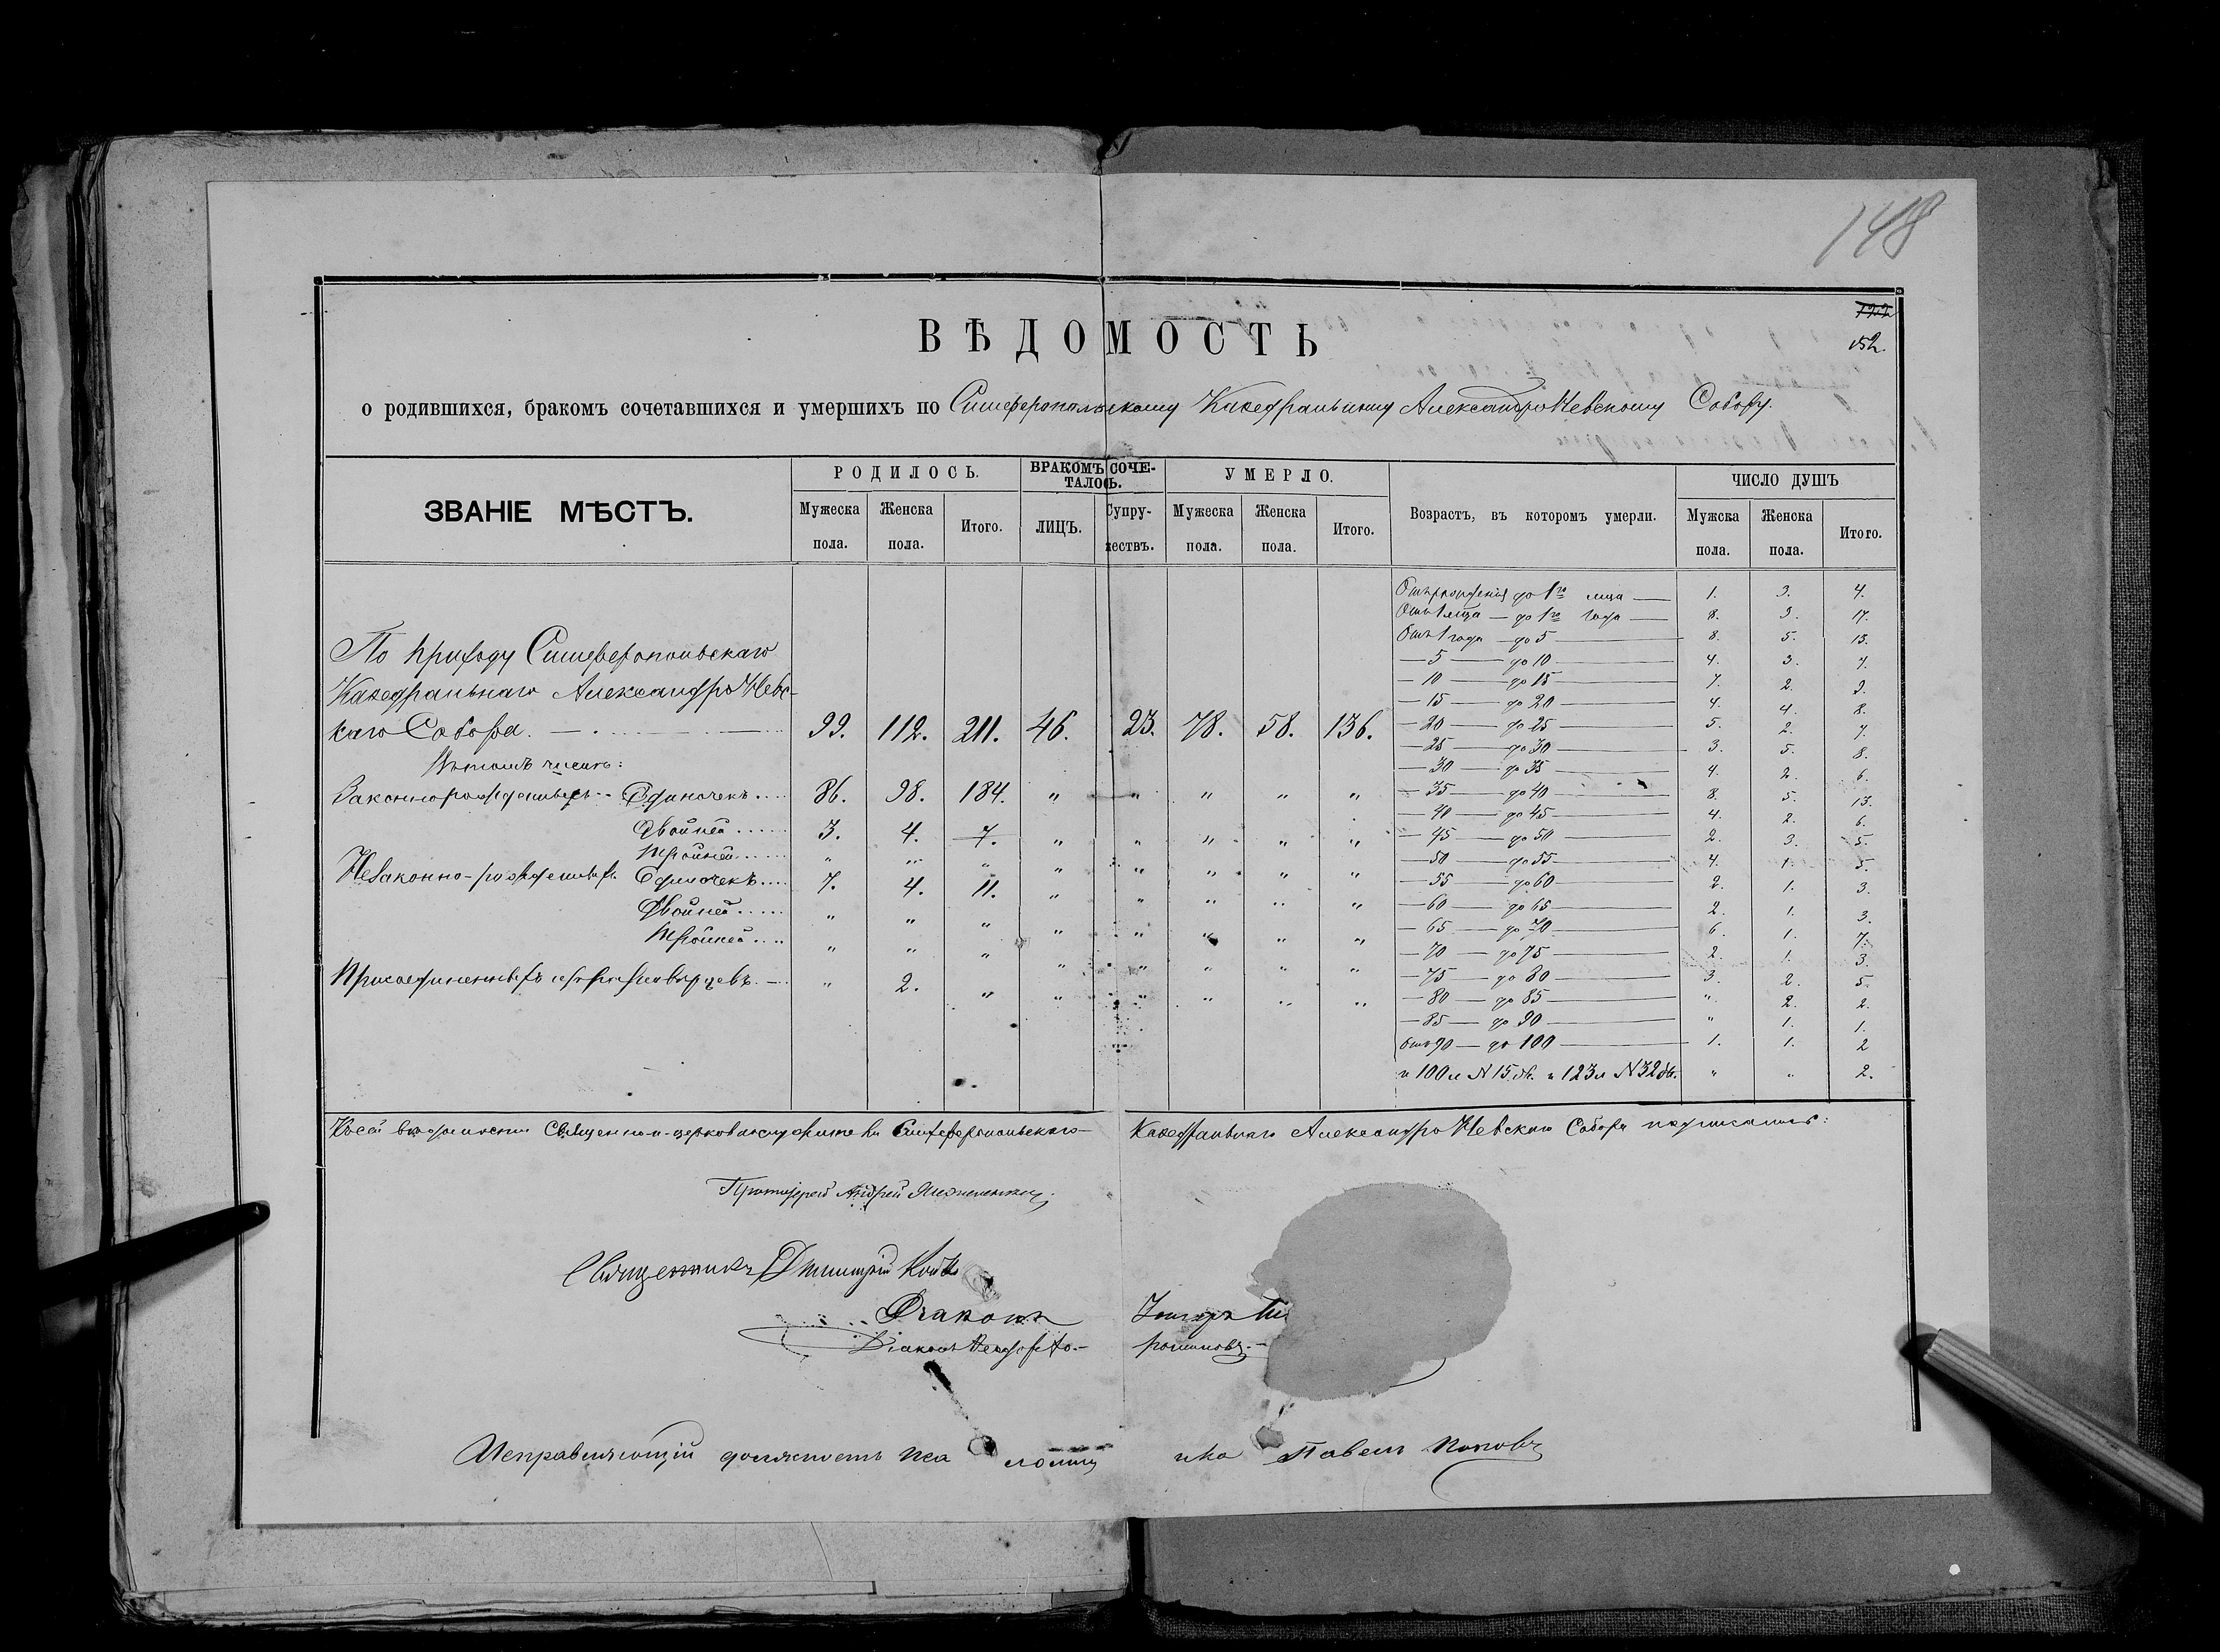 148
122
152.
ВѢДОМОСТЬ
о родившихся, бракомъ сочетавшихся и умершихъ по Симферопольскому Каѳедральному АлександроНевскому Собору.
ЗВАНІЕ МѢСТЪ. РОДИЛОСЬ. БРАКОМЪ СОЧЕ-ТАЛОСЬ. УМЕРЛО. Возрастъ, въ которомъ умерли. ЧИСЛО ДУШЪ
Мужеска пола. Женска пола. Итого. ЛИЦЪ. Супружествъ. Мужеска пола. Женска пола. Итого. Мужска пола. Женска пола. Итого.
По приходу Симферопольскаго
Каѳедральнаго АлександроНевс-
каго Собора. 99. 112. 211. 46. 23. 78. 58. 136.
Въ томъ числѣ:
Законнорожденныхъ Одиночекъ.... 86. 98. 184. " " " " "
Двойней...... 3. 4. 7. " " " " "
Тройней...... " " " " " " " "
Незаконно-рожденныхъ Одиночекъ.... 7. 4. 11. " " " " "
Двойней..... " " " " " " " "
Тройней.... " " " " " " " "
Присоединенныхъ иновѣрцевъ. " 2. " " " " " "
Отъ рожденія до 1го мца 1. 3. 4.
Отъ 1 мца до 1го года 8. 9. 17.
Отъ 1 года до 5 8. 5. 13.
5 до 10 4. 3. 7.
10 до 15 7. 2. 9.
15 до 20 4. 4. 8.
20 до 25 5. 2. 7.
25 до 30 3. 5. 8.
30 до 35 4. 2. 6.
35 до 40 8. 5. 13.
40 до 45 4. 2. 6.
45 до 50 2. 3. 5.
50 до 55 4. 1. 5.
55 до 60 2. 1. 3.
60 до 65 2. 1. 3.
65 до 70 6. 1. 7.
70 до 75 2. 1. 3.
75 до 80 3. 2. 5.
80 до 85 " 2. 2.
85 до 90 " 1. 1.
Отъ 90 до 100 1. 1. 2
и 100 л N 15 и 123 л N 32 " " 2.
Къ сей вѣдомости Священно-церковнослужители Симферопольскаго Каѳедральнаго АлександроНевскаго Собора подписались:
Протоіерей Андрей
Священникъ Дмитрій
Діаконъ
Діаконъ Ѳеодоръ
Исправляющій должность псаломщика Павелъ Поповъ